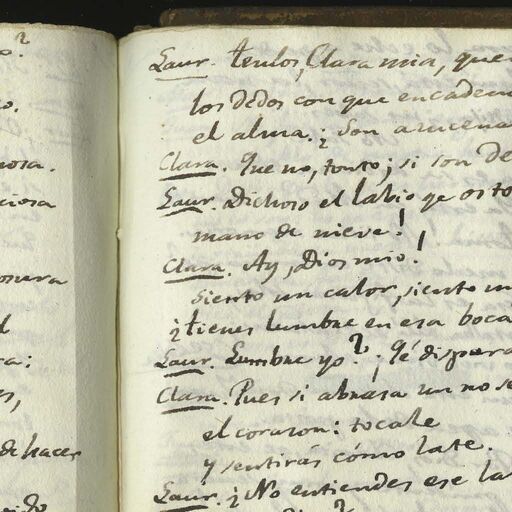 o?
o.
nosa.
ciosa
onera
d
ra:
s,
de hacer
Laur. tenlos, Clara mia, que
los dedos con que encaden
el alma. ¿Son azucena
Clara. Que no, tonto; si son de
Laur. Dichoso el labio qe os to
mano de nieve!
Clara. Ay, Dios mio!
siento un calor, siento un
¿tienes lumbre en esa boca
Laur. Lumbre yo? ¡Qé dispara
Clara. Pues si abrasa un no se
el corazon: tocale
y sentirás cómo late.
Laur. ¿No entiendes ese la